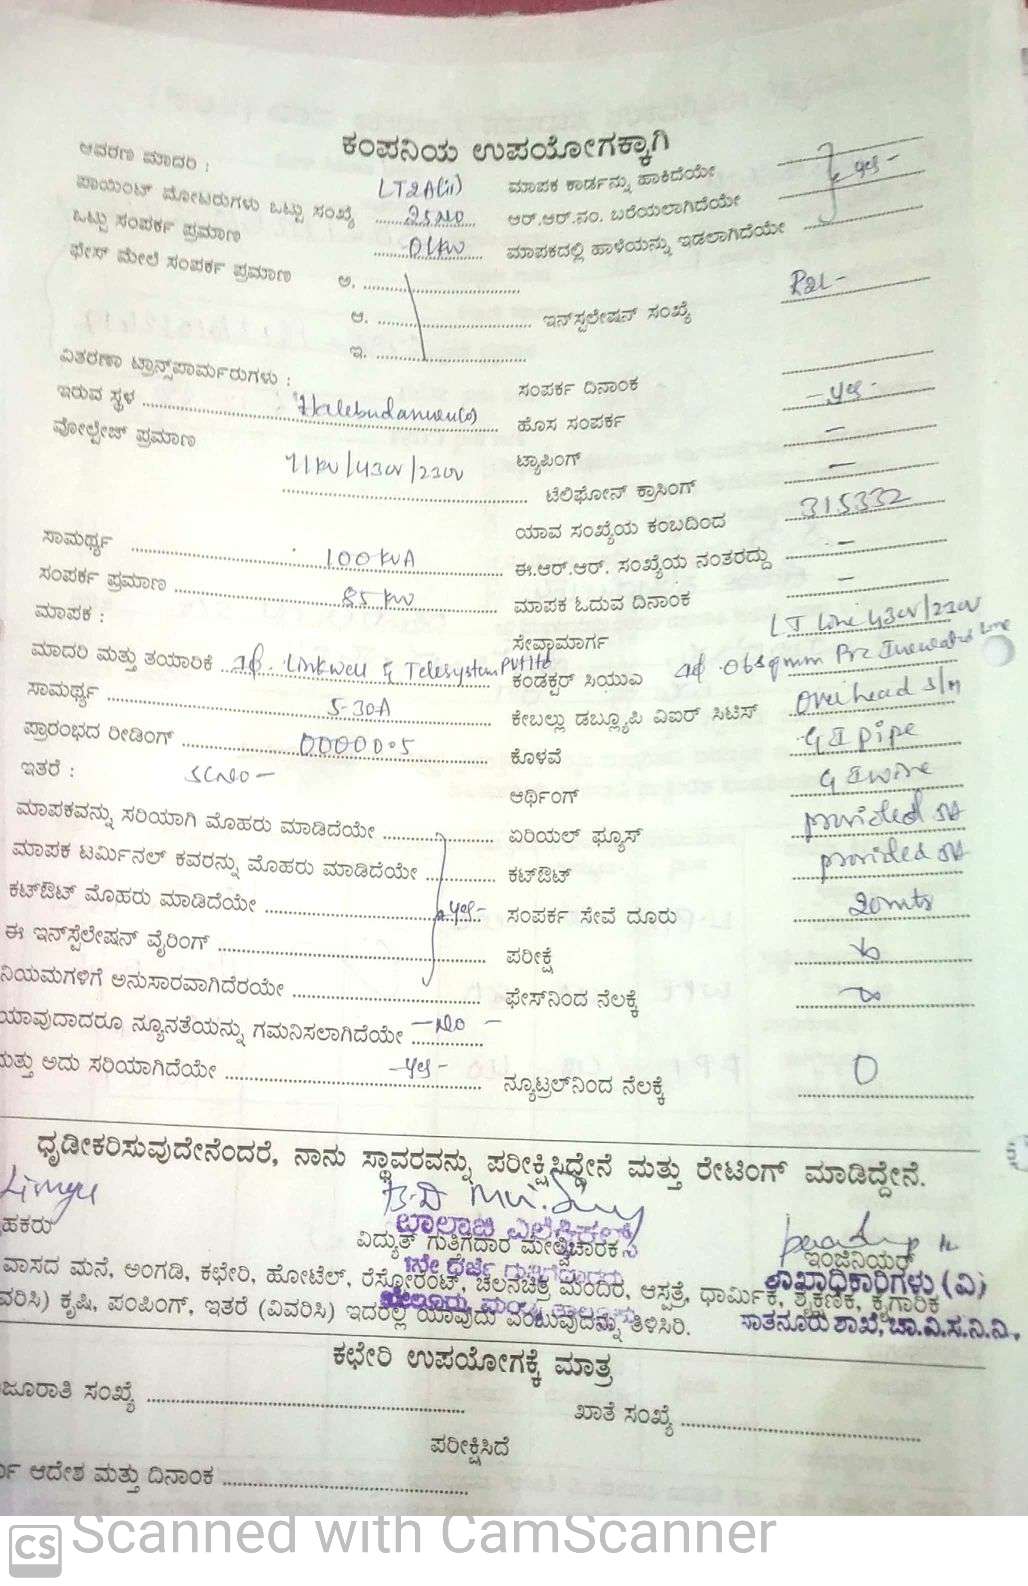 ಕಂಪನಿಯ ಉಪಯೋಗಕ್ಕಾಗಿ
ಆವರಣ ಮಾದರಿ : LT2A(ii) ಮಾಪಕ ಕಾರ್ಡನ್ನು ಹಾಕಿದೆಯೇ
ಪಾಯಿಂಟ್ ಮೋಟರುಗಳು ಒಟ್ಟು ಸಂಖ್ಯೆ 2SNO ಆರ್.ಆರ್.ನಂ. ಬರೆಯಲಾಗಿದೆಯೇ yes -
ಒಟ್ಟು ಸಂಪರ್ಕ ಪ್ರಮಾಣ 01KW ಮಾಪಕದಲ್ಲಿ ಹಾಳೆಯನ್ನು ಇಡಲಾಗಿದೆಯೇ
ಫೇಸ್ ಮೇಲೆ ಸಂಪರ್ಕ ಪ್ರಮಾಣ ಅ.
ಆ. ಇನ್‌ಸ್ಪಲೇಷನ್ ಸಂಖ್ಯೆ
ಇ.
ವಿತರಣಾ ಟ್ರಾನ್ಸ್‌ಪಾರ್ಮರುಗಳು : ಸಂಪರ್ಕ ದಿನಾಂಕ
ಇರುವ ಸ್ಥಳ ಹೊಸ ಸಂಪರ್ಕ - yes -
ವೋಲ್ಟೇಜ್ ಪ್ರಮಾಣ 11KV/430V/230V ಟ್ಯಾಪಿಂಗ್ -
ಟೆಲಿಫೋನ್ ಕ್ರಾಸಿಂಗ್ -
ಯಾವ ಸಂಖ್ಯೆಯ ಕಂಬದಿಂದ 315332
ಸಾಮರ್ಥ್ಯ 100 KVA ಈ.ಆರ್.ಆರ್. ಸಂಖ್ಯೆಯ ನಂತರದ್ದು -
ಸಂಪರ್ಕ ಪ್ರಮಾಣ 85 KW ಮಾಪಕ ಓದುವ ದಿನಾಂಕ -
ಮಾಪಕ : ಸೇವಾಮಾರ್ಗ LT Line 430V/230V
ಮಾದರಿ ಮತ್ತು ತಯಾರಿಕೆ 1ϕ. Linkwell & Telesystem PVT ltd ಕಂಡಕ್ಟರ್ ಸಿಯುಎ 06sqmm Pre
ಸಾಮರ್ಥ್ಯ 5-30A ಕೇಬಲ್ಲು ಡಬ್ಲ್ಯೂಪಿ ವಿಐರ್ ಸಿಟಿಸ್ overhead s/m
ಪ್ರಾರಂಭದ ರೀಡಿಂಗ್ 00000.5 ಕೊಳವೆ G I pipe
ಇತರೆ : SCNO - ಆರ್ಥಿಂಗ್ G I wire
ಮಾಪಕವನ್ನು ಸರಿಯಾಗಿ ಮೊಹರು ಮಾಡಿದೆಯೇ ಏರಿಯಲ್ ಫ್ಯೂಸ್ provided
ಮಾಪಕ ಟರ್ಮಿನಲ್ ಕವರನ್ನು ಮೊಹರು ಮಾಡಿದೆಯೇ ಕಟ್‌ಔಟ್ provided
ಕಟ್‌ಔಟ್ ಮೊಹರು ಮಾಡಿದೆಯೇ yes - ಸಂಪರ್ಕ ಸೇವೆ ದೂರು 20mts
ಈ ಇನ್‌ಸ್ಪೆಲೇಷನ್ ವೈರಿಂಗ್ ಪರೀಕ್ಷೆ
ನಿಯಮಗಳಿಗೆ ಅನುಸಾರವಾಗಿದೆರಯೇ ಫೇಸ್‌ನಿಂದ ನೆಲಕ್ಕೆ ∞
ಯಾವುದಾದರೂ ನ್ಯೂನತೆಯನ್ನು ಗಮನಿಸಲಾಗಿದೆಯೇ - NO -
ಮತ್ತು ಅದು ಸರಿಯಾಗಿದೆಯೇ - yes - ನ್ಯೂಟ್ರಲ್‌ನಿಂದ ನೆಲಕ್ಕೆ 0
ಧೃಡೀಕರಿಸುವುದೇನೆಂದರೆ, ನಾನು ಸ್ಥಾವರವನ್ನು ಪರೀಕ್ಷಿಸಿದ್ದೇನೆ ಮತ್ತು ರೇಟಿಂಗ್ ಮಾಡಿದ್ದೇನೆ.
ಬಾಲಾಜಿ ಎಲೆಕ್ಟ್ರಿಕಲ್ಸ್
ಹಕರು ವಿದ್ಯುತ್ ಗುತ್ತಿಗೆದಾರ ಮೇಲ್ವಿಚಾರಕ ಇಂಜಿನಿಯರ್
1ನೇ ದರ್ಜೆ ಶಾಖಾಧಿಕಾರಿಗಳು (ವಿ)
ವಾಸದ ಮನೆ, ಅಂಗಡಿ, ಕಛೇರಿ, ಹೋಟೆಲ್, ರೆಸ್ಟೋರೆಂಟ್, ಚಲನಚಿತ್ರ ಮಂದಿರ, ಆಸ್ಪತ್ರೆ, ಧಾರ್ಮಿಕ, ಶೈಕ್ಷಣಿಕ, ಕೈಗಾರಿಕ
ವರಿಸಿ) ಕೃಷಿ, ಪಂಪಿಂಗ್, ಇತರೆ (ವಿವರಿಸಿ) ಇದರಲ್ಲಿ ಯಾವುದು ಎಂಬುವುದನ್ನು ತಿಳಿಸಿರಿ. ಸಾತನೂರು ಶಾಖೆ, ಚಾ.ವಿ.ಸ.ನಿ.ನಿ.
ಕಛೇರಿ ಉಪಯೋಗಕ್ಕೆ ಮಾತ್ರ
ಜೂರಾತಿ ಸಂಖ್ಯೆ ಖಾತೆ ಸಂಖ್ಯೆ
ಪರೀಕ್ಷಿಸಿದೆ
ಆದೇಶ ಮತ್ತು ದಿನಾಂಕ
CS Scanned with CamScanner